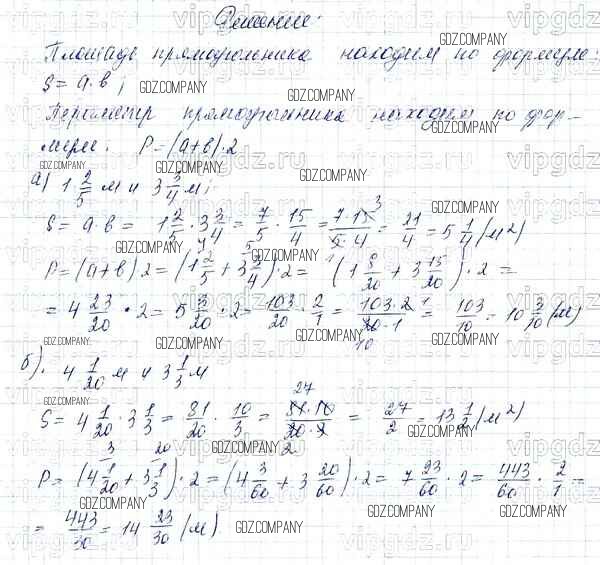 Решение:
Площадь прямоугольника находим по формуле:
S = a·b;
Периметр прямоугольника находим по фор-
муле: P = (a+b)·2
а) 1 2/5 м и 3 3/4 м;
S = a·b = 1 2/5 · 3 3/4 = 7/5 · 15/4 = 7·15/5·4 = 21/4 = 5 1/4 (м²)
P = (a+b)·2 = (1 2/5 + 3 3/4)·2 = (1 8/20 + 3 15/20)·2 =
= 4 23/20 · 2 = 5 3/20 · 2 = 103/20 · 2/1 = 103·2/20·1 = 103/10 = 10 3/10 (м)
б). 4 1/20 м и 3 1/3 м
S = 4 1/20 · 3 1/3 = 81/20 · 10/3 = 81·10/20·3 = 27/2 = 13 1/2 (м²)
P = (4 1/20 + 3 1/3)·2 = (4 3/60 + 3 20/60)·2 = 7 23/60 · 2 = 443/60 · 2/1 =
= 443/30 = 14 23/30 (м)
GDZ.COMPANY
vipgdz.ru